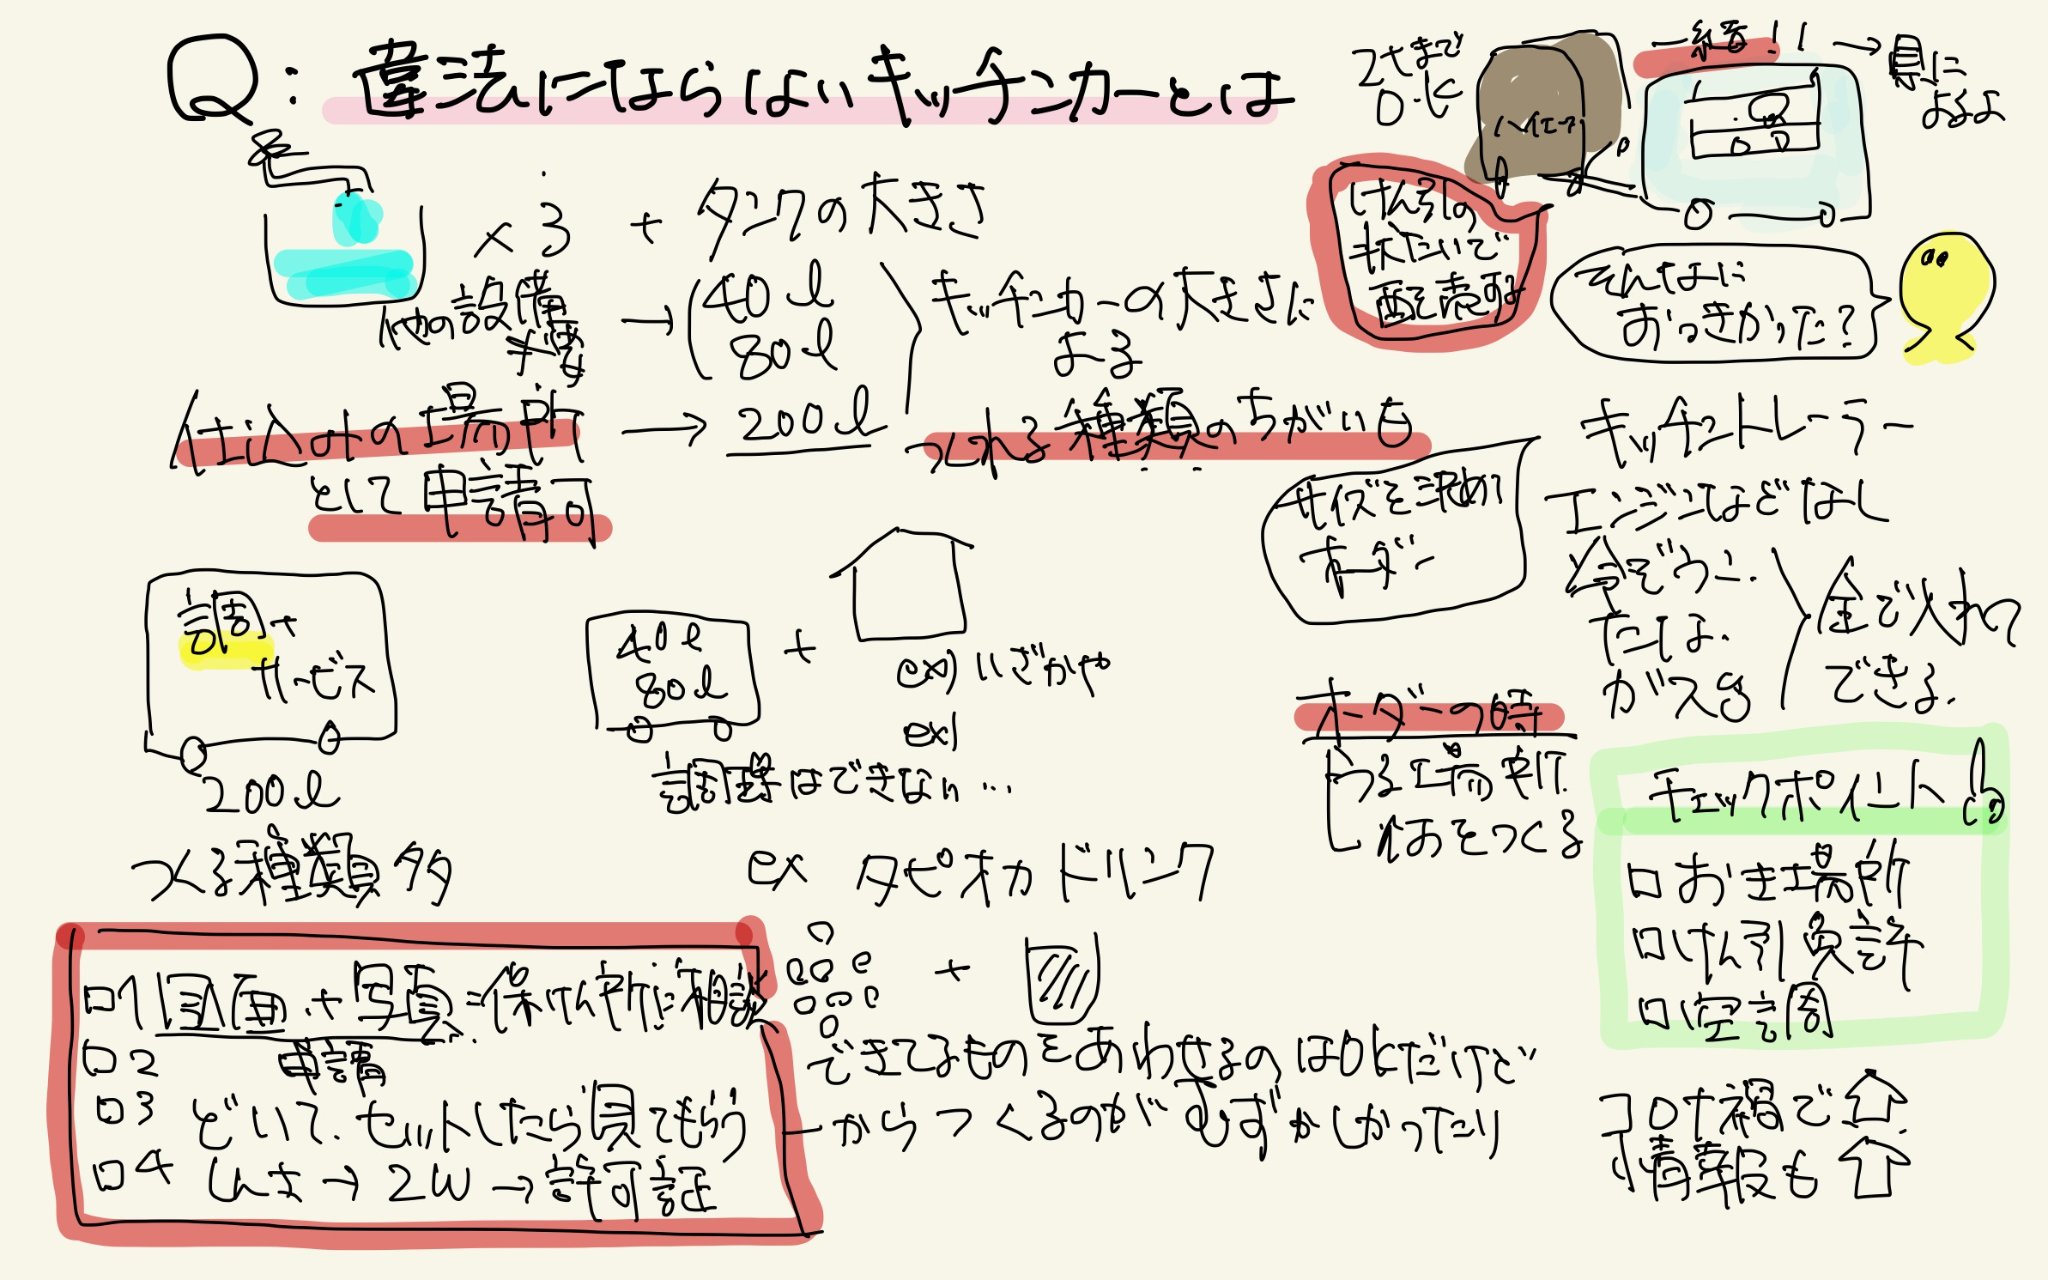 Q: 違法にはならないキッチンカーとは
2tまで
O.K
ハイエース
一緒!! → 県に
よるよ
×3 + タンクの大きさ
他の設備
→ 40ℓ
80ℓ
キッチンカーの大きさに
よる
けん引の
状たいで
販売可
そんなに
おっきかった?
仕込みの場所
として申請可
→ 200ℓ
つくれる種類のちがいも
サイズを決めて
オーダー
キッチントレーラー
エンジンなどなし
冷ぞうこ.
たな.
ガスも
全て入れて
できる.
調+
サービス
200ℓ
つくる種類多
40ℓ
80ℓ
+
ex) いざかや
ex)
調理はできない…
ex タピオカドリンク
+
できてるものをあわせるのはOKだけど
一からつくるのがむずかしかったり
オーダーの時
うる場所.
なおをつくる
チェックポイント
□おき場所
□けん引免許
□空調
コロナ禍で⇧
情報も⇧
□1 図面+写真=保けん所に相談
□2 申請
□3 どいて.セットしたら見てもらう
□4 しんさ→2W→許可証